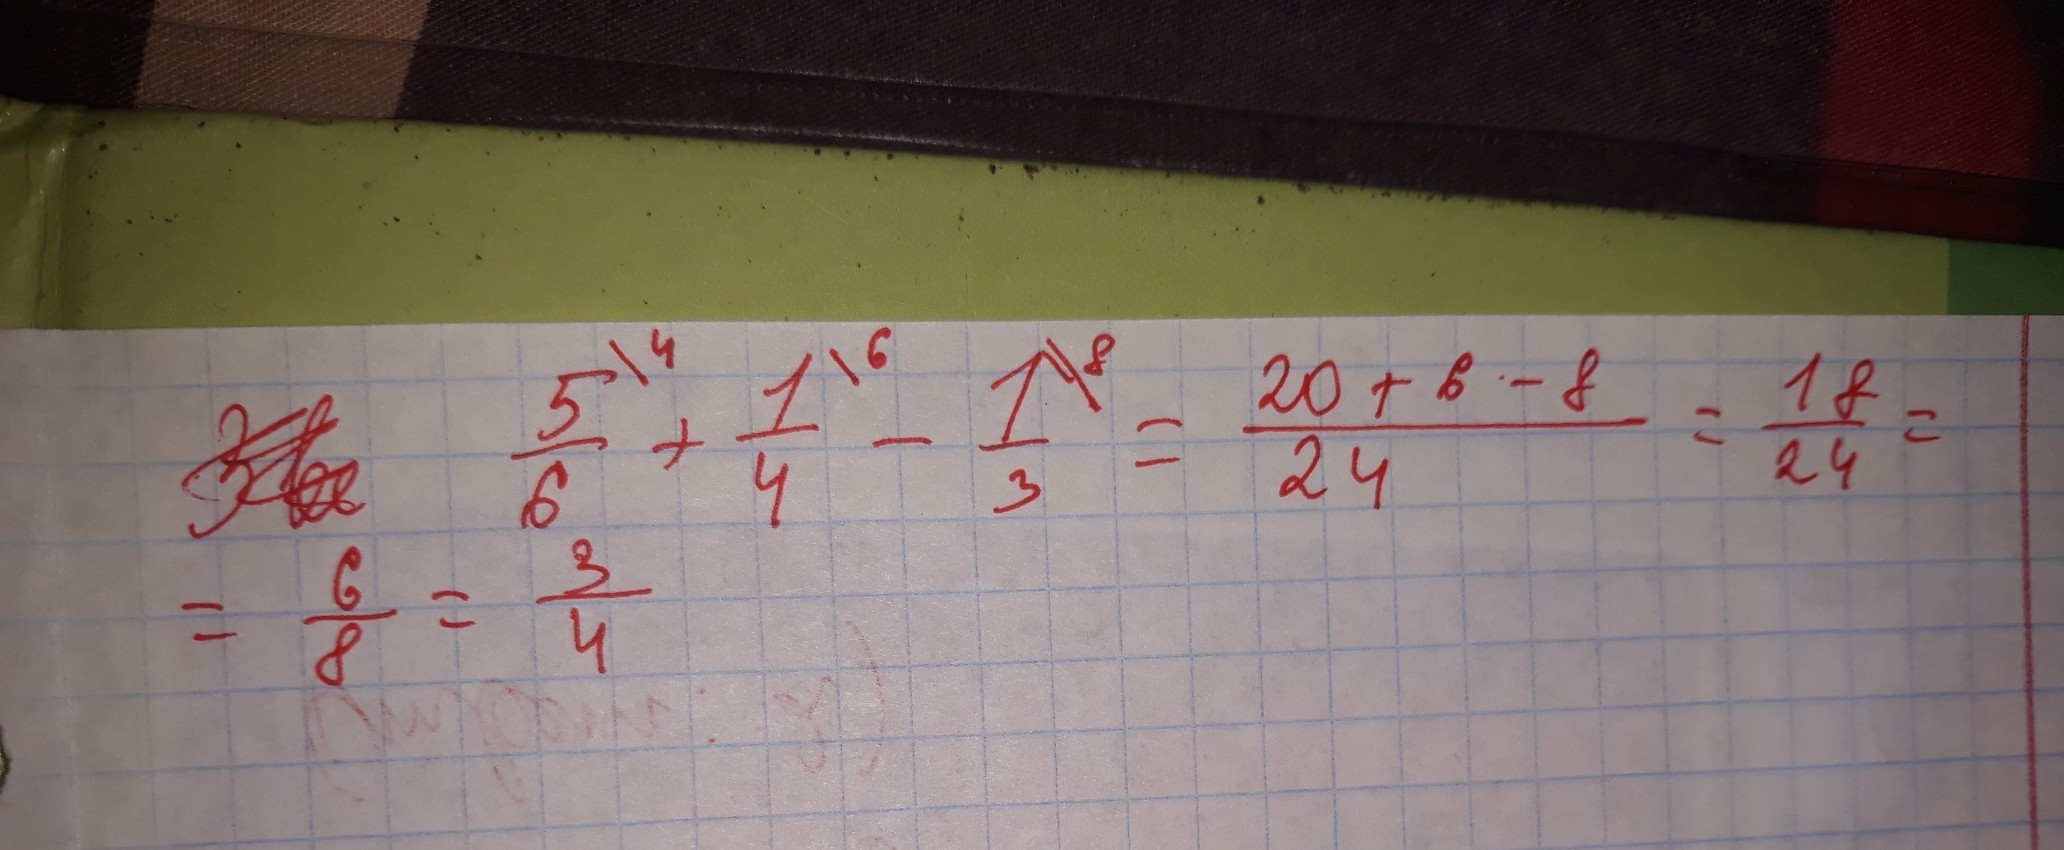 5/6 \4 + 1/4 \6 - 1/3 \8 = 20 + 6 - 8 / 24 = 18/24 =
= 6/8 = 3/4